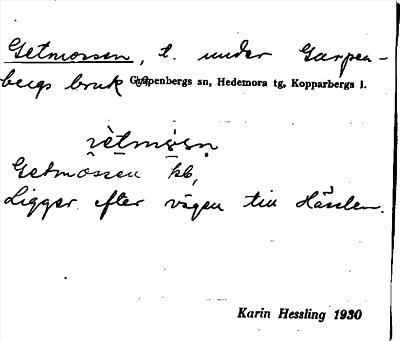 Getmossen, t. under Garpen-
bergs bruk Garpenbergs sn, Hedemora tg, Kopparbergs l.
Getmossen kb,
Ligger efter vägen till Hässlen.
Karin Hessling 1930